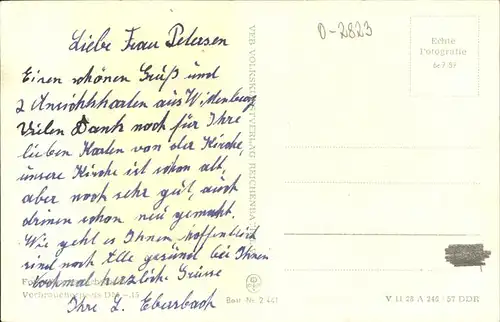 Liebe Frau Petersen
Einen schönen Gruß und
2 Ansichtkarten aus Wittenberg
Vielen Dank noch für Ihre
lieben Karten von der Kirche,
unsere Kirche ist schon alt,
aber noch sehr gut, auch
drinen schon neu gemacht.
Wie geht es Ihnen, hoffentlich
sind noch Alle gesünd bei Ihnen
Nochmal herzliche Grüsse
Ihre L. Ebersbach
Verbraucherpreis DM -.15
VEB VOLKSKUNSTVERLAG REICHENBACH
Best Nr. 2 441
0-2823
Echte
Fotografie
V 11 28 A 246 / 57 DDR